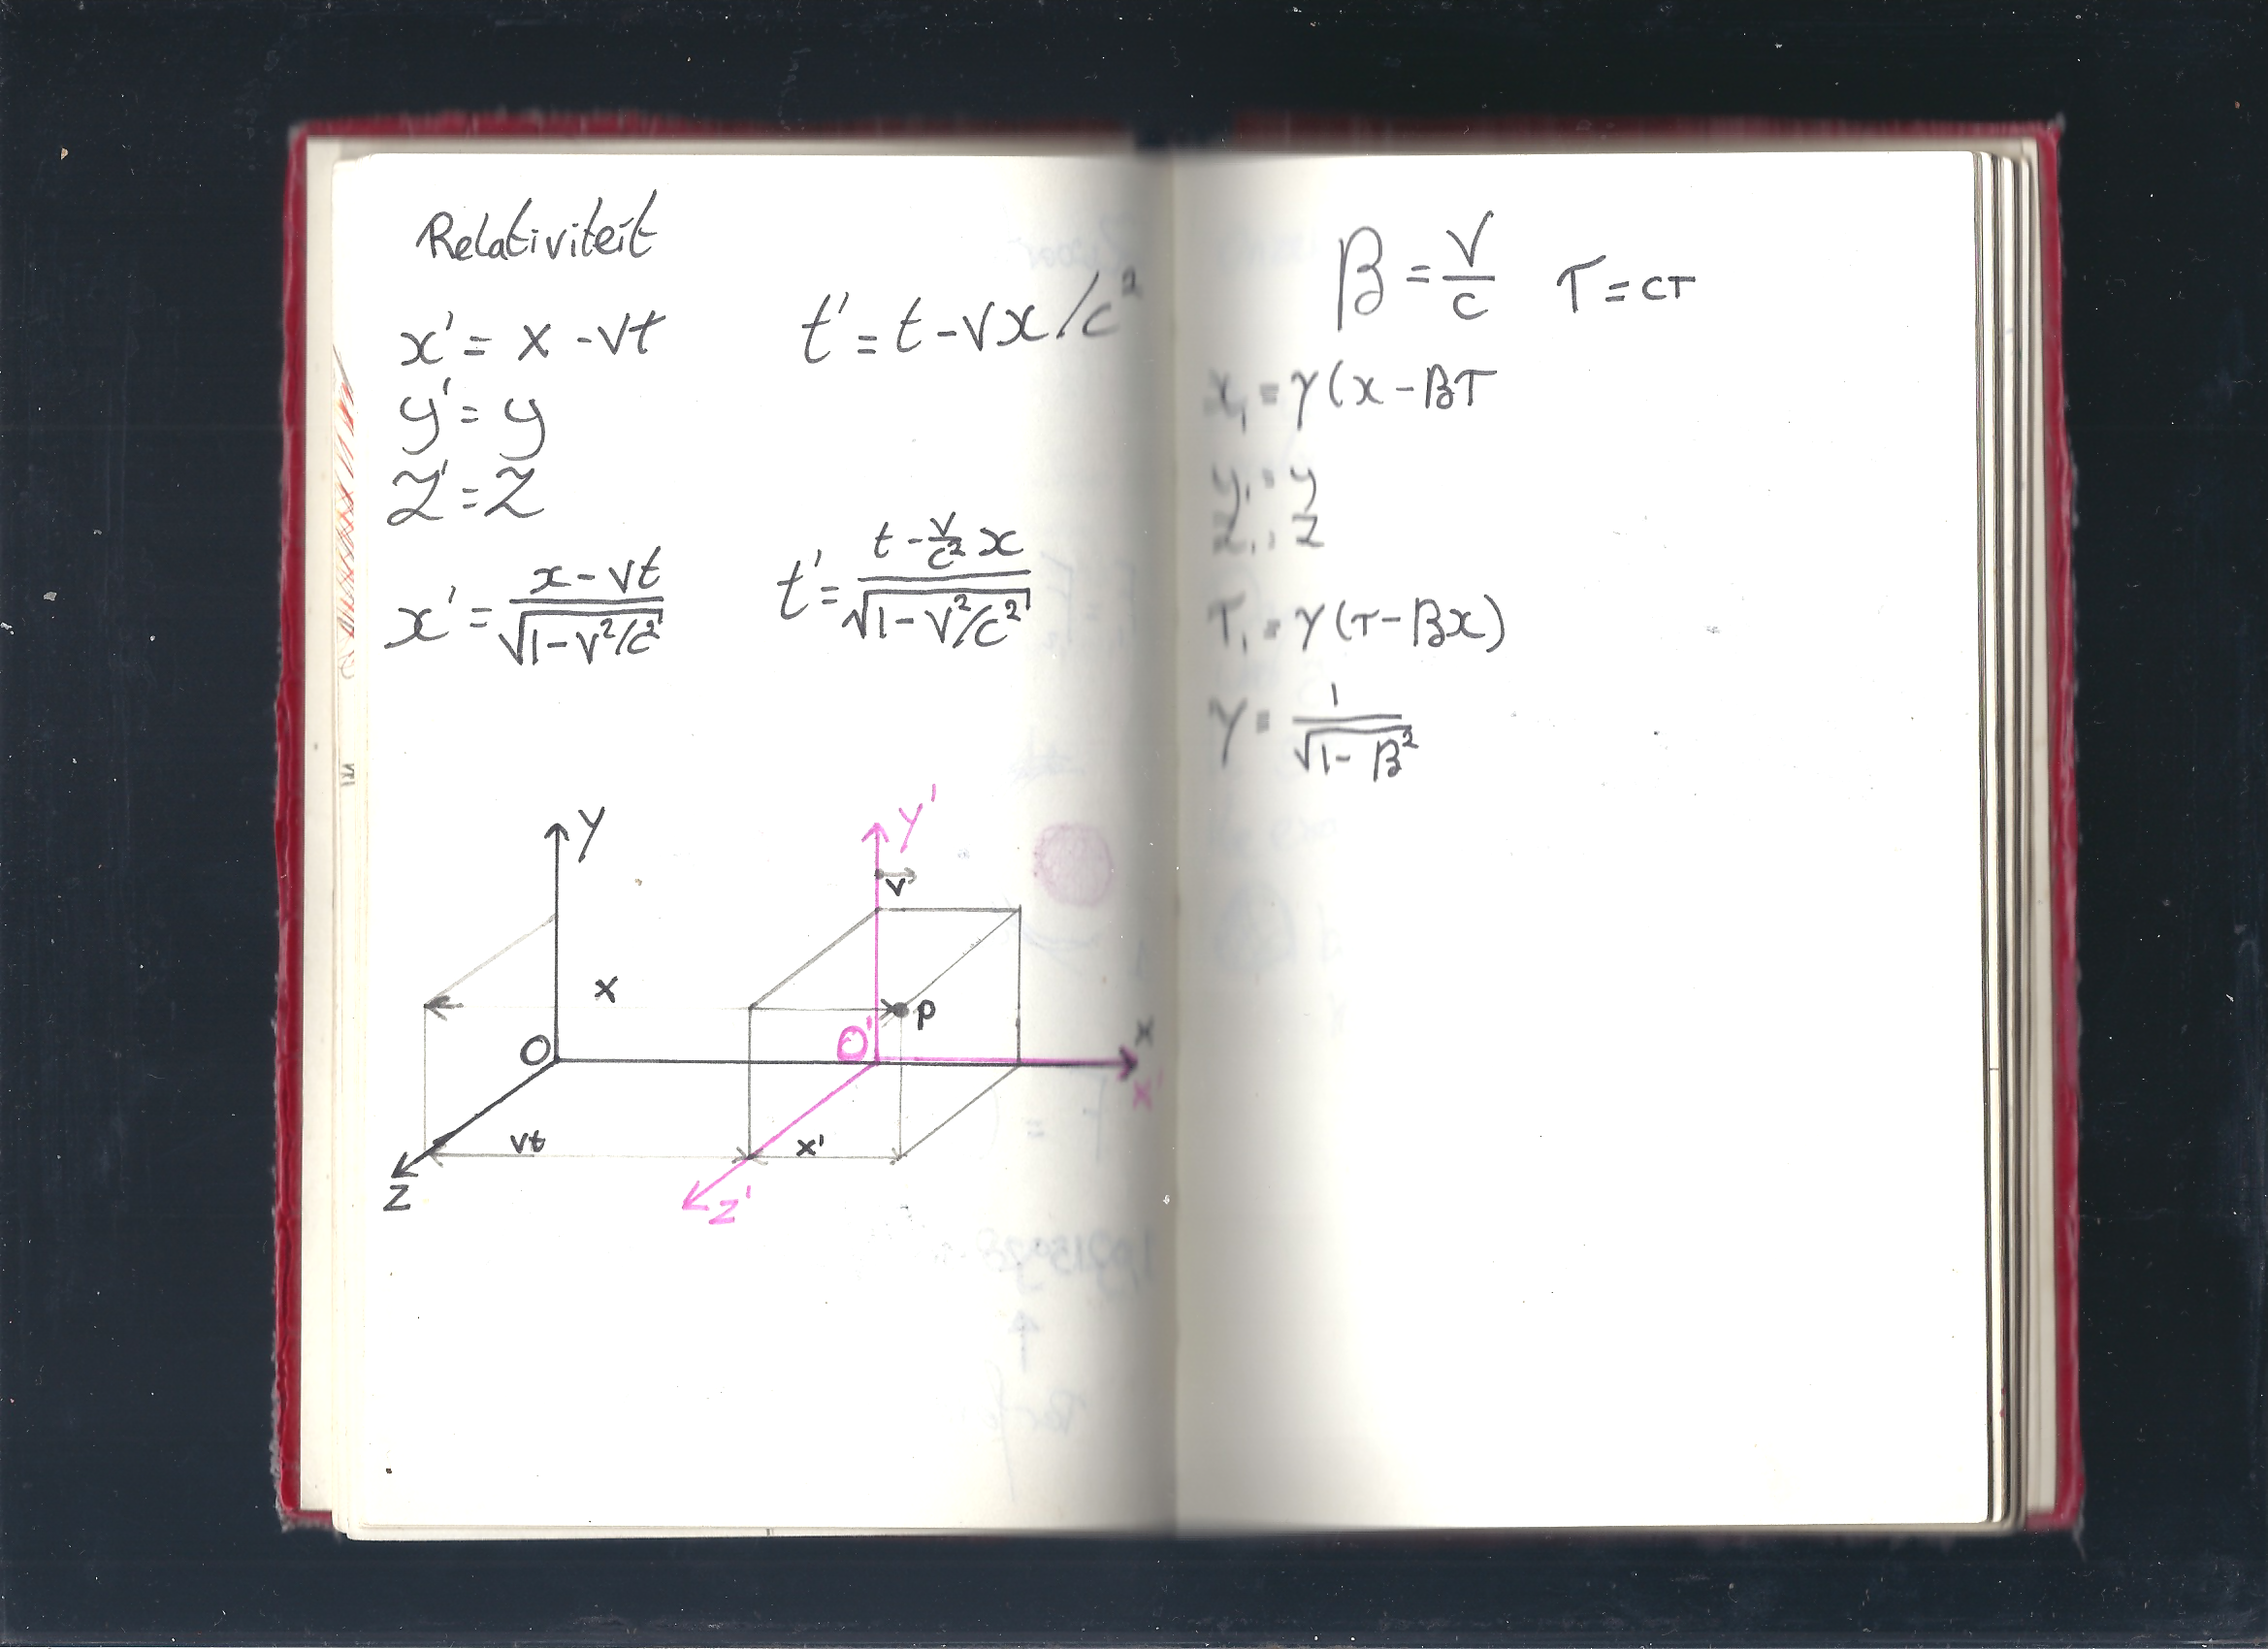 Relativiteit
x' = x - vt    t' = t - vx/c²
y' = y
z' = z
x' = (x - vt)/√(1 - v²/c²)    t' = (t - (v/c²)x)/√(1 - v²/c²)
Y    Y'
v
x    P
O    O'    X
X'
vt    x'
Z    Z'
β = v/c    τ = cτ
x₁ = γ(x - βτ
y₁ = y
z₁ = z
τ₁ = γ(τ - βx)
γ = 1/√(1 - β²)